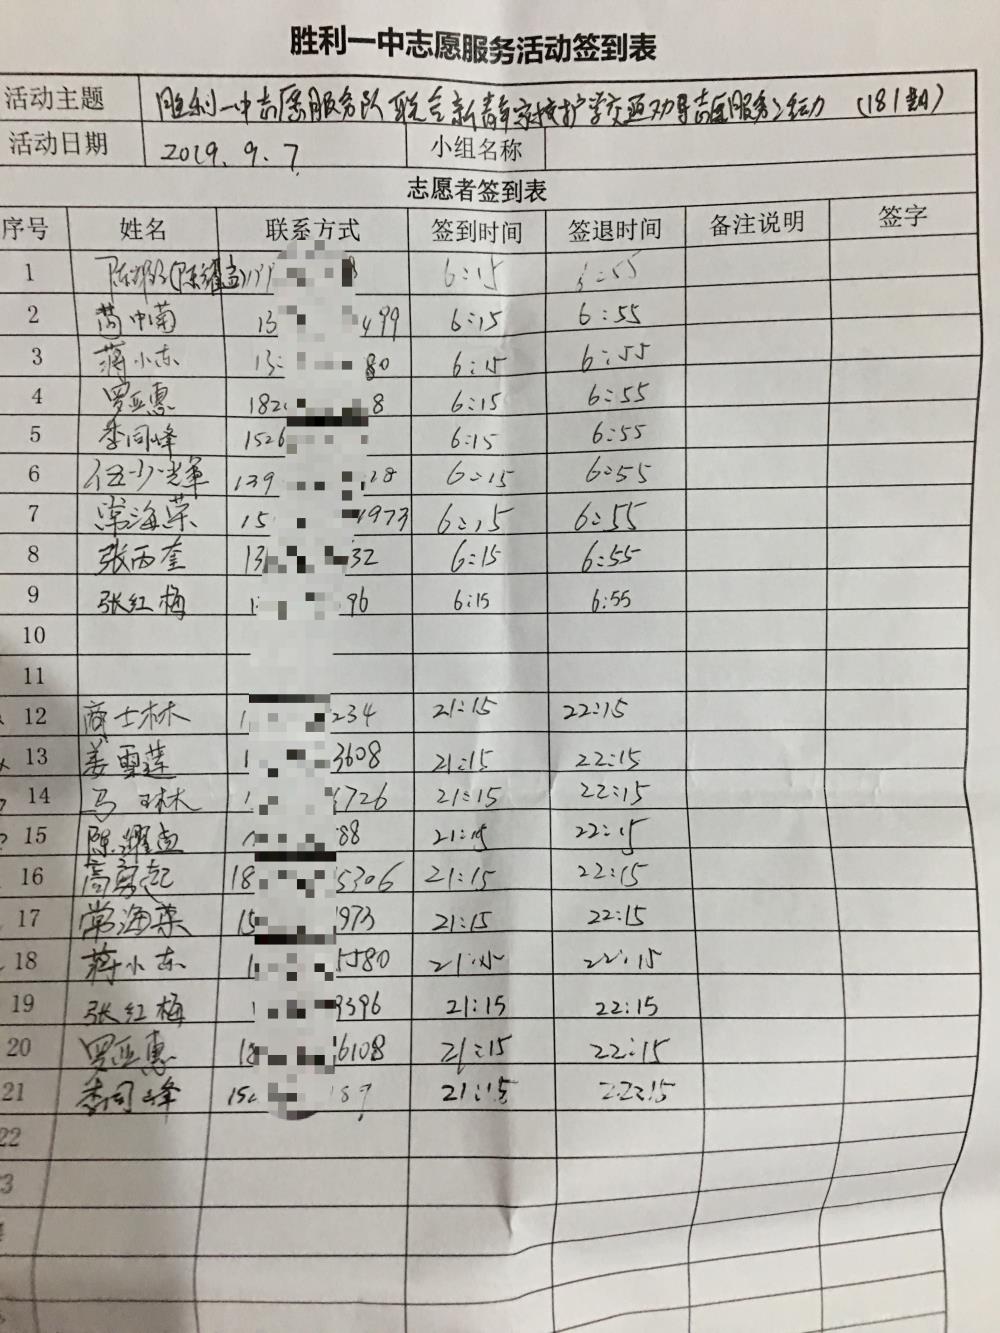 胜利一中志愿服务活动签到表
活动主题 胜利一中志愿服务队联合新青年家校护学交通劝导志愿服务活动 (181期)
活动日期 2019.9.7 小组名称
志愿者签到表
序号 姓名 联系方式 签到时间 签退时间 备注说明 签字
1 6:15 :55
2 中南 13 499 6:15 6:55
3 蒋小东 13 80 6:15 6:55
4 罗亚惠 182 8 6:15 6:55
5 季同峰 1526 6:15 6:55
6 伍少辉 139 28 6:15 6:55
7 常海荣 15 1973 6:15 6:55
8 张西奎 13 32 6:15 6:55
9 张红梅 1 96 6:15 6:55
10
11
12 商士林 1 234 21:15 22:15
13 姜雪莲 1 3608 21:15 22:15
14 马琳 1 3726 21:15 22:15
15 陈耀孟 1 88 21:15 22:15
16 高勇起 18 5306 21:15 22:15
17 常海荣 15 1973 21:15 22:15
18 蒋小东 1 5580 21:15 22:15
19 张红梅 9396 21:15 22:15
20 罗亚惠 18 6108 21:15 22:15
21 季同峰 152 189 21:15 22:15
22
3